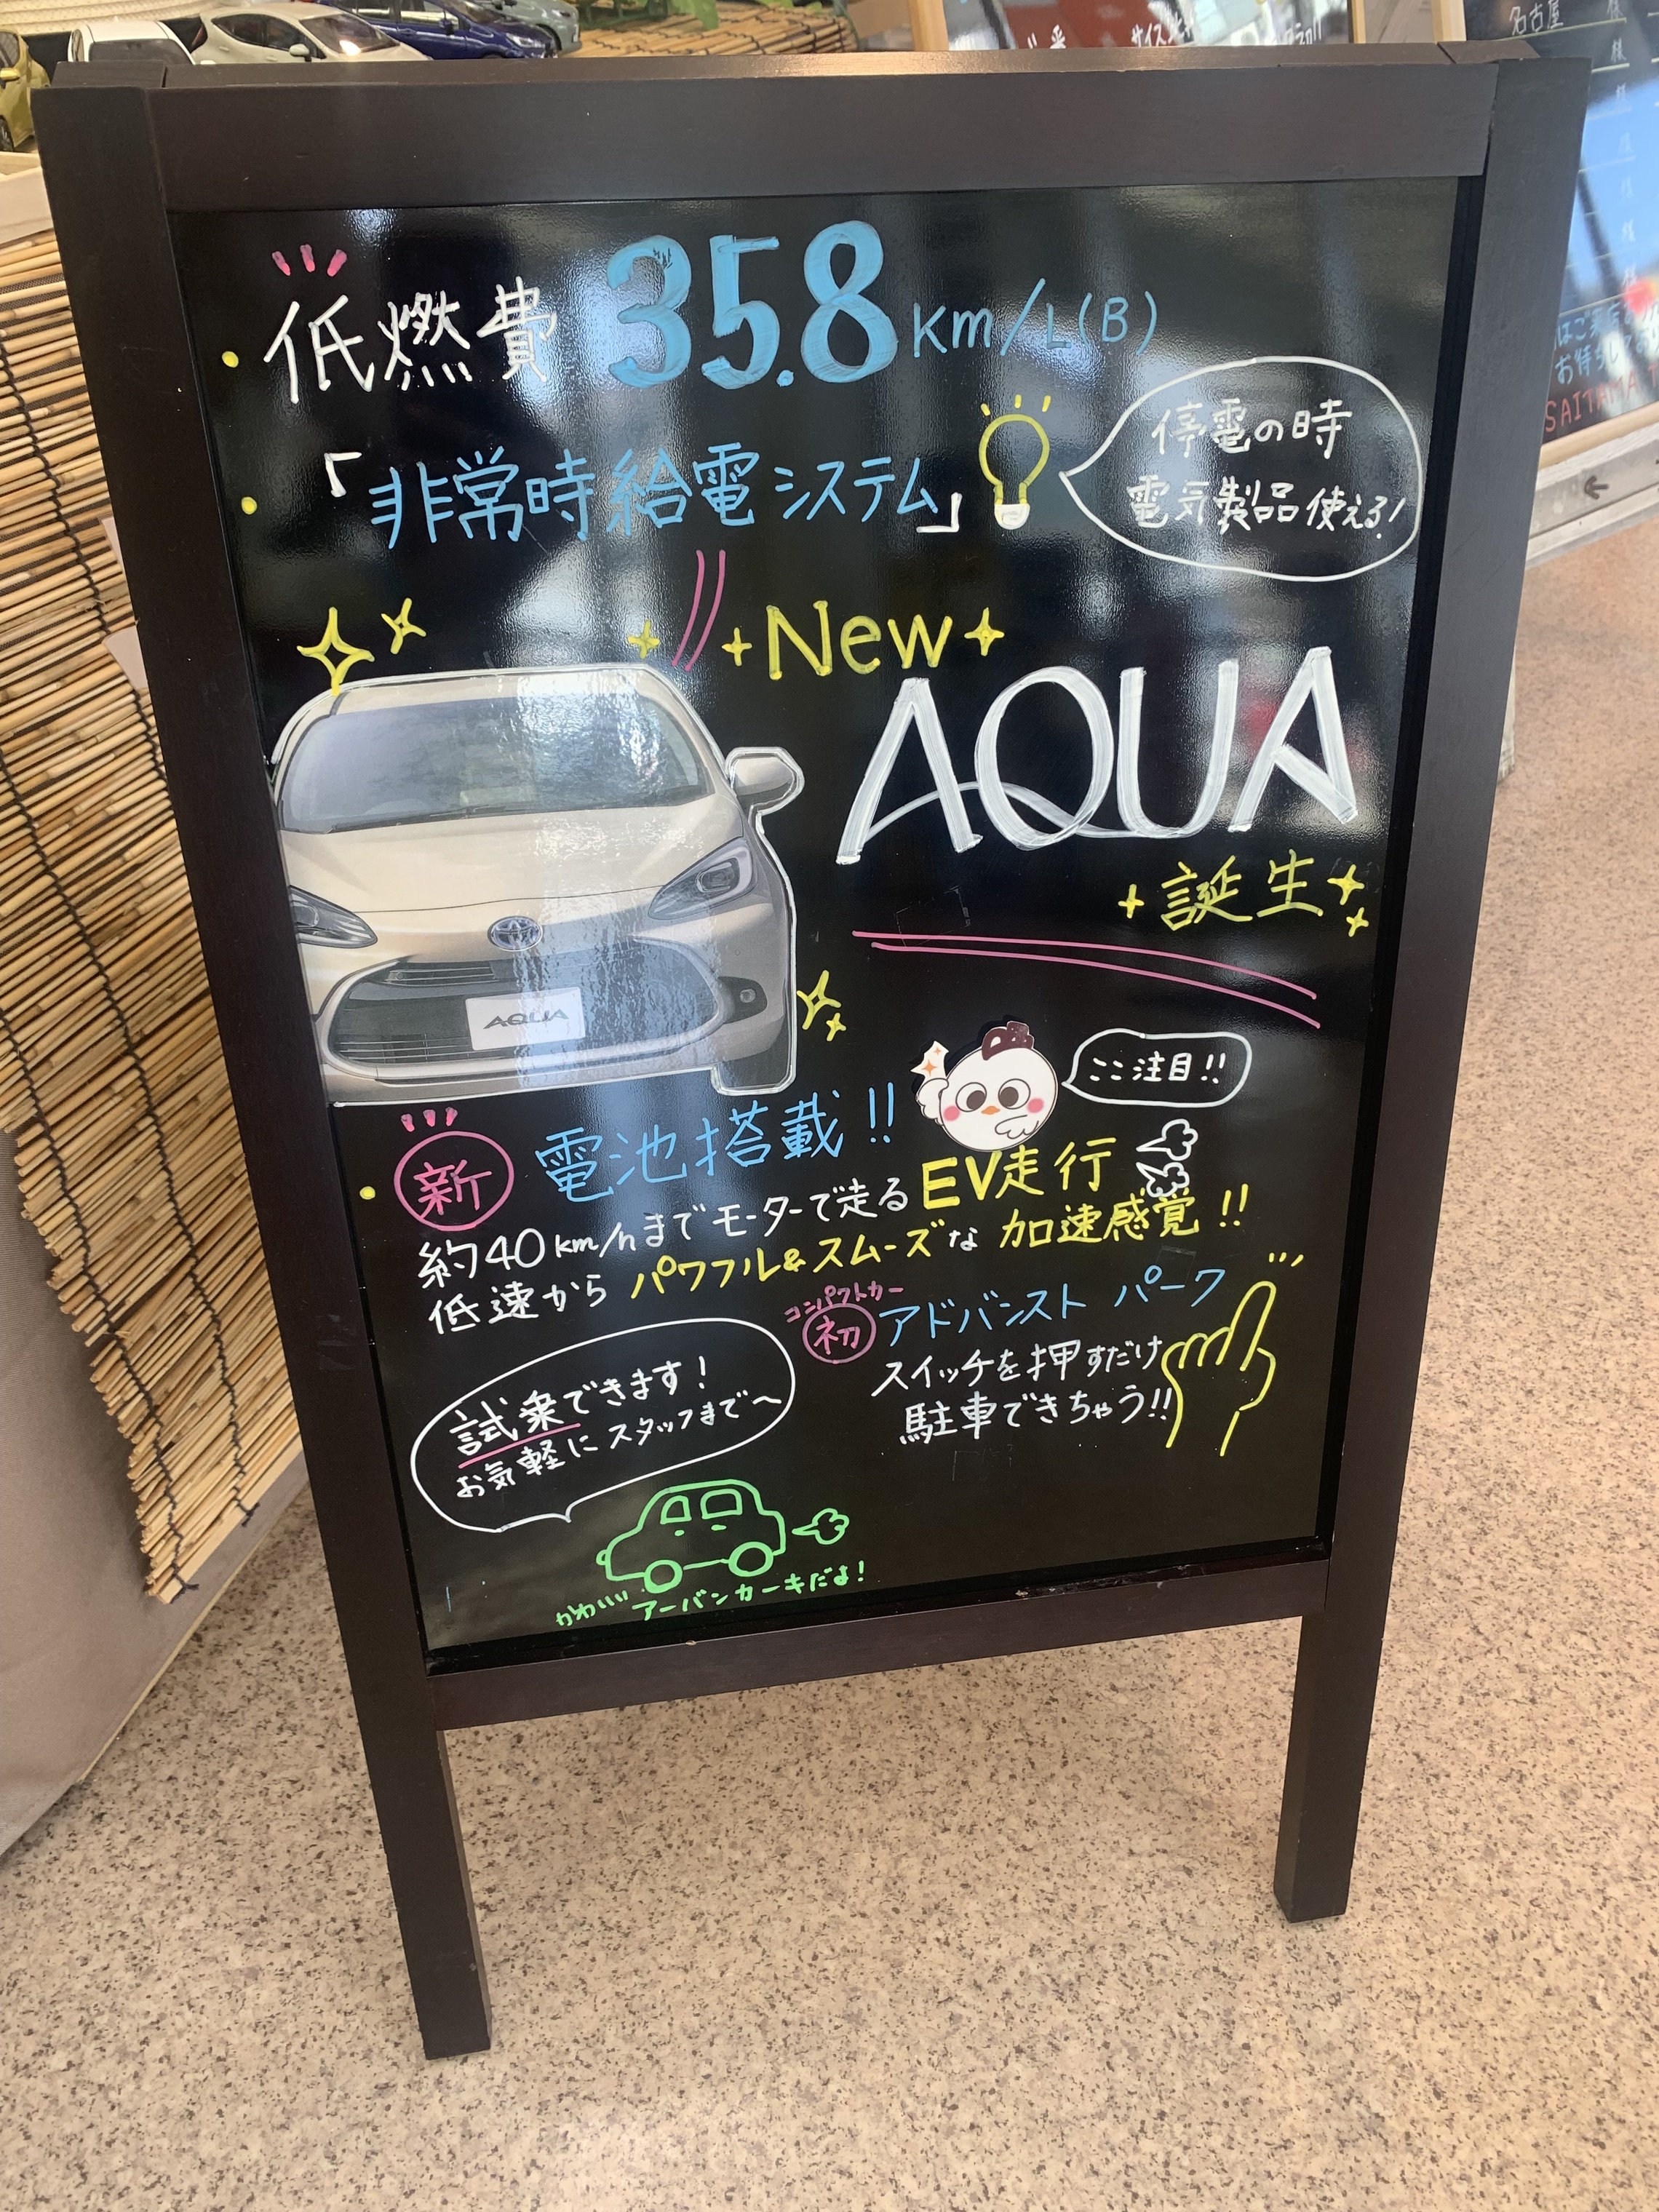 低燃費 35.8 km/L(B)
「非常時給電システム」
停電の時
電気製品使える!
New
AQUA
誕生
AQUA
ここ注目!!
新 電池搭載!!
約40km/hまでモーターで走る EV走行
低速から パワフル&スムーズな 加速感覚!!
コンパクトカー
初 アドバンスト パーク
スイッチを押すだけ
駐車できちゃう!!
試乗できます!
お気軽にスタッフまで〜
かわいい アーバンカーキだよ!
名古屋 様
様
お待ちして
SAITAMA T